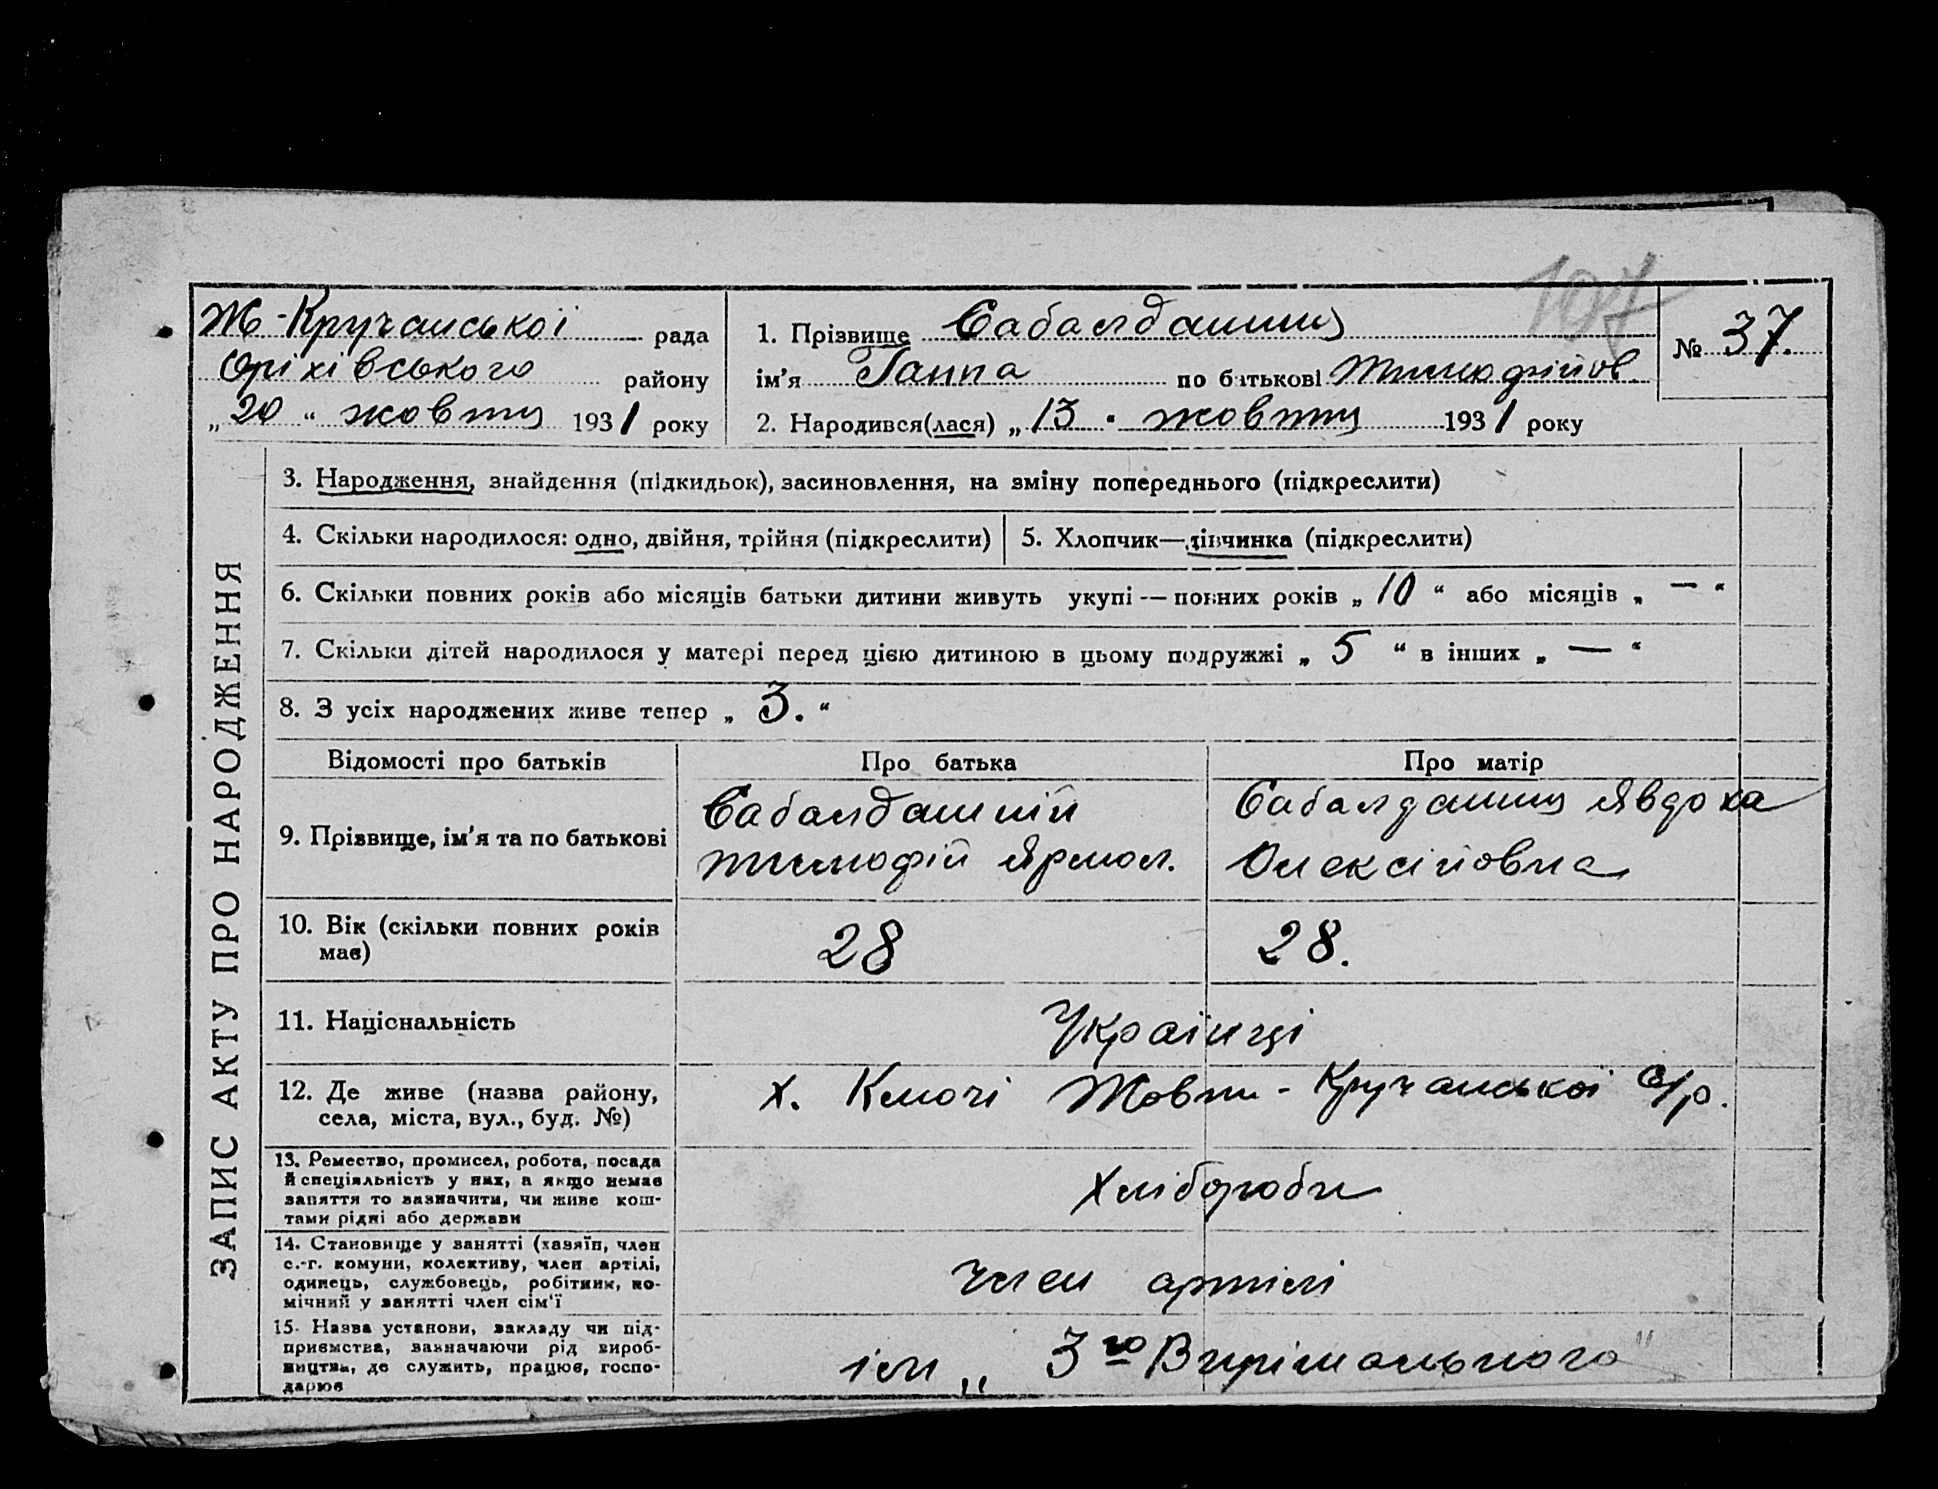 107
Ж-Кручанської рада
Оріхівського району
„20“ жовтня 1931 року
1. Прізвище Сабалдашня
ім'я Ганна по батькові Тимофійов.
2. Народився(лася) „13“ жовтня 1931 року
№ 37.
ЗАПИС АКТУ ПРО НАРОДЖЕННЯ
3. Народження, знайдення (підкидьок), засиновлення, на зміну попереднього (підкреслити)
4. Скільки народилося: одно, двійня, трійня (підкреслити)
5. Хлопчик—дівчинка (підкреслити)
6. Скільки повних років або місяців батьки дитини живуть укупі — повних років „10“ або місяців „—“
7. Скільки дітей народилося у матері перед цією дитиною в цьому подружжі „5“ в інших „—“
8. З усіх народжених живе тепер „3.“
Відомості про батьків Про батька Про матір
9. Прізвище, ім'я та по батькові
Сабалдашній
Тимофій Ярмол.
Сабалдашня Явдоха
Олексійовна
10. Вік (скільки повних років
має)
28
28.
11. Національність
Українці
12. Де живе (назва району,
села, міста, вул., буд. №)
х. Ключі Жовт-Кручанської С/р.
13. Ремество, промисел, робота, посада
й спеціяльність у них, а якщо немає
заняття то зазначити, чи живе кош-
тами рідні або держави
Хлібороби
14. Становище у занятті (хазяїн, член
с.-г. комуни, колективу, член артілі,
одинець, службовець, робітник, по-
мічний у занятті член сім'ї
член артілі
15. Назва установи, закладу чи під-
приємства, зазначаючи рід вироб-
ництва, де служить, працює, госпо-
дарює
ім „3го Вирішального“